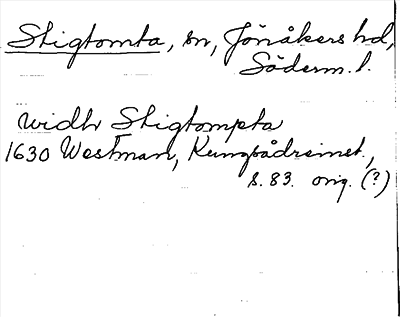 Stigtomta, sn, Jönåkers hd,
Söderm. l.
widh Stigtompta
1630 Westman, Kungbådreinet.,
s. 83. orig. (?)